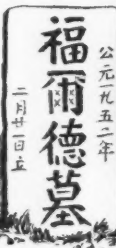 公元一九五二年
福爾德墓
二月廿一日立